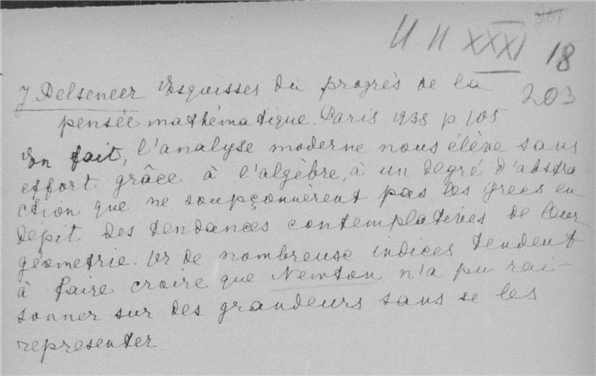 U. II XXXI 18
203
J Delseneer Esquisses du progrès de la
pensée mathématique. Paris 1938 p 105
En fait, l'analyse moderne nous élève sans
effort grâce à l'algèbre, à un degré d'abstra-
ction que ne soupçonnèrent pas les grecs en
depit des tendances contemplatives de leur
géometrie. Or de nombreuse indices tendent
à faire croire que Newton n'a pu rai-
sonner sur des grandeurs sans se les
representer